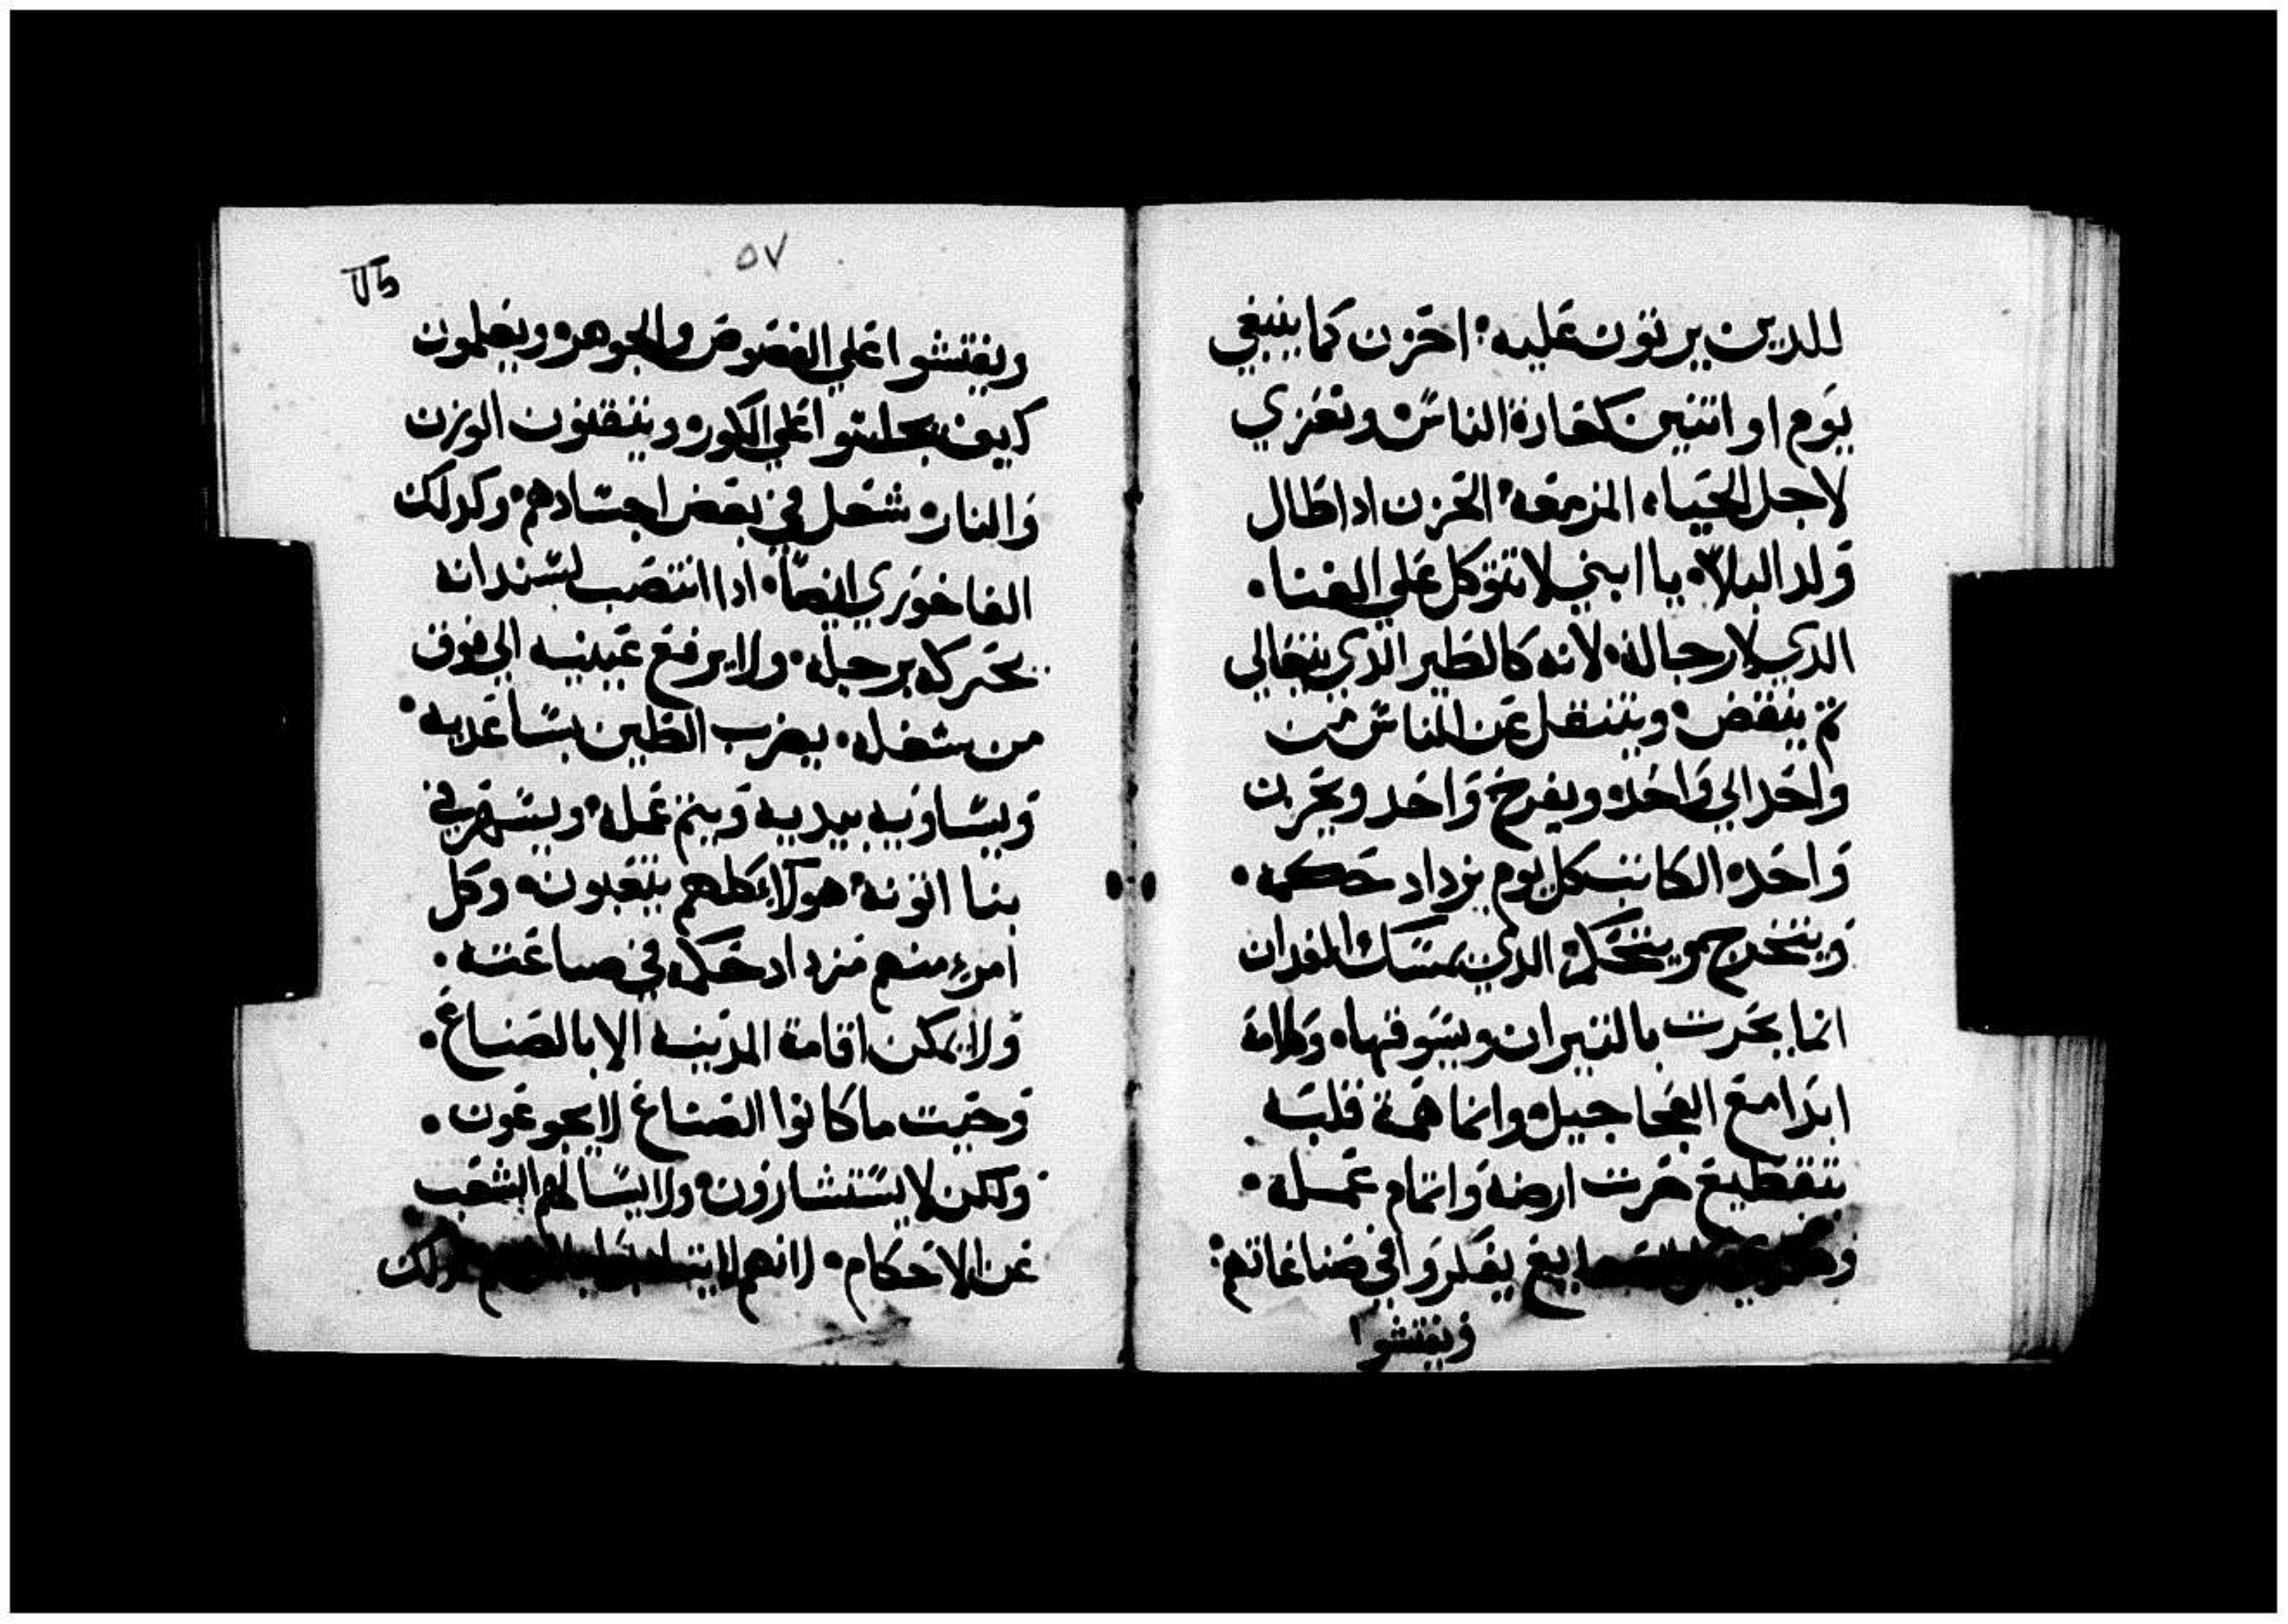 للدين يرتون عليه: احزن كما ينبغي
يوم او اتنين كعادة الناس وتعزي
لاجل الحياه المزمعه الحزن اداطال
ولد البلاء يا ابني لاتتوكل علي الغنا.
الدي لارجا له لانه كالطير الذي يتعالي
تم ينقض وينتقل عن الناس من
واحد الي واحد ويفرح واحد ويحزن
واحد الكاتب كل يوم يزداد حكمه.
الدي يمسك الفدان
انما يحرت بالتيران ويسوقها وكلامة
ابدا مع العجاجيل وانما همة قلبه
بتقطيع حرت ارضه واتمام عمله.
يفكروا في صناعاتهم:
ويفتشوا
٥٧
ويفتشوا علي الفصوص والجوهر ويعلمون
كيف يجلسوا علي الكور ويتقنون الوزن
والنار تشعل في بعض اجسادهم وكدلك
الفاخوري ايضا. ادا انتصب لسندانه
يحركه برجله. ولايرفع عينيه الي فوق
من شغله. يضرب الطين بساعديه.
ويساويه بيديه ويتم عمله ويسهر في
بنا اتونه هولاء كلهم يتعبون وكل
امرء منهم مزداد حكمه في صناعته.
ولايمكن اقامة المدينه الابالصناع.
وحيت ماكانوا الصناع لايجوعون.
ولكن لايستشارون ولايسالهم الشعب
عن الاحكام. لانهم